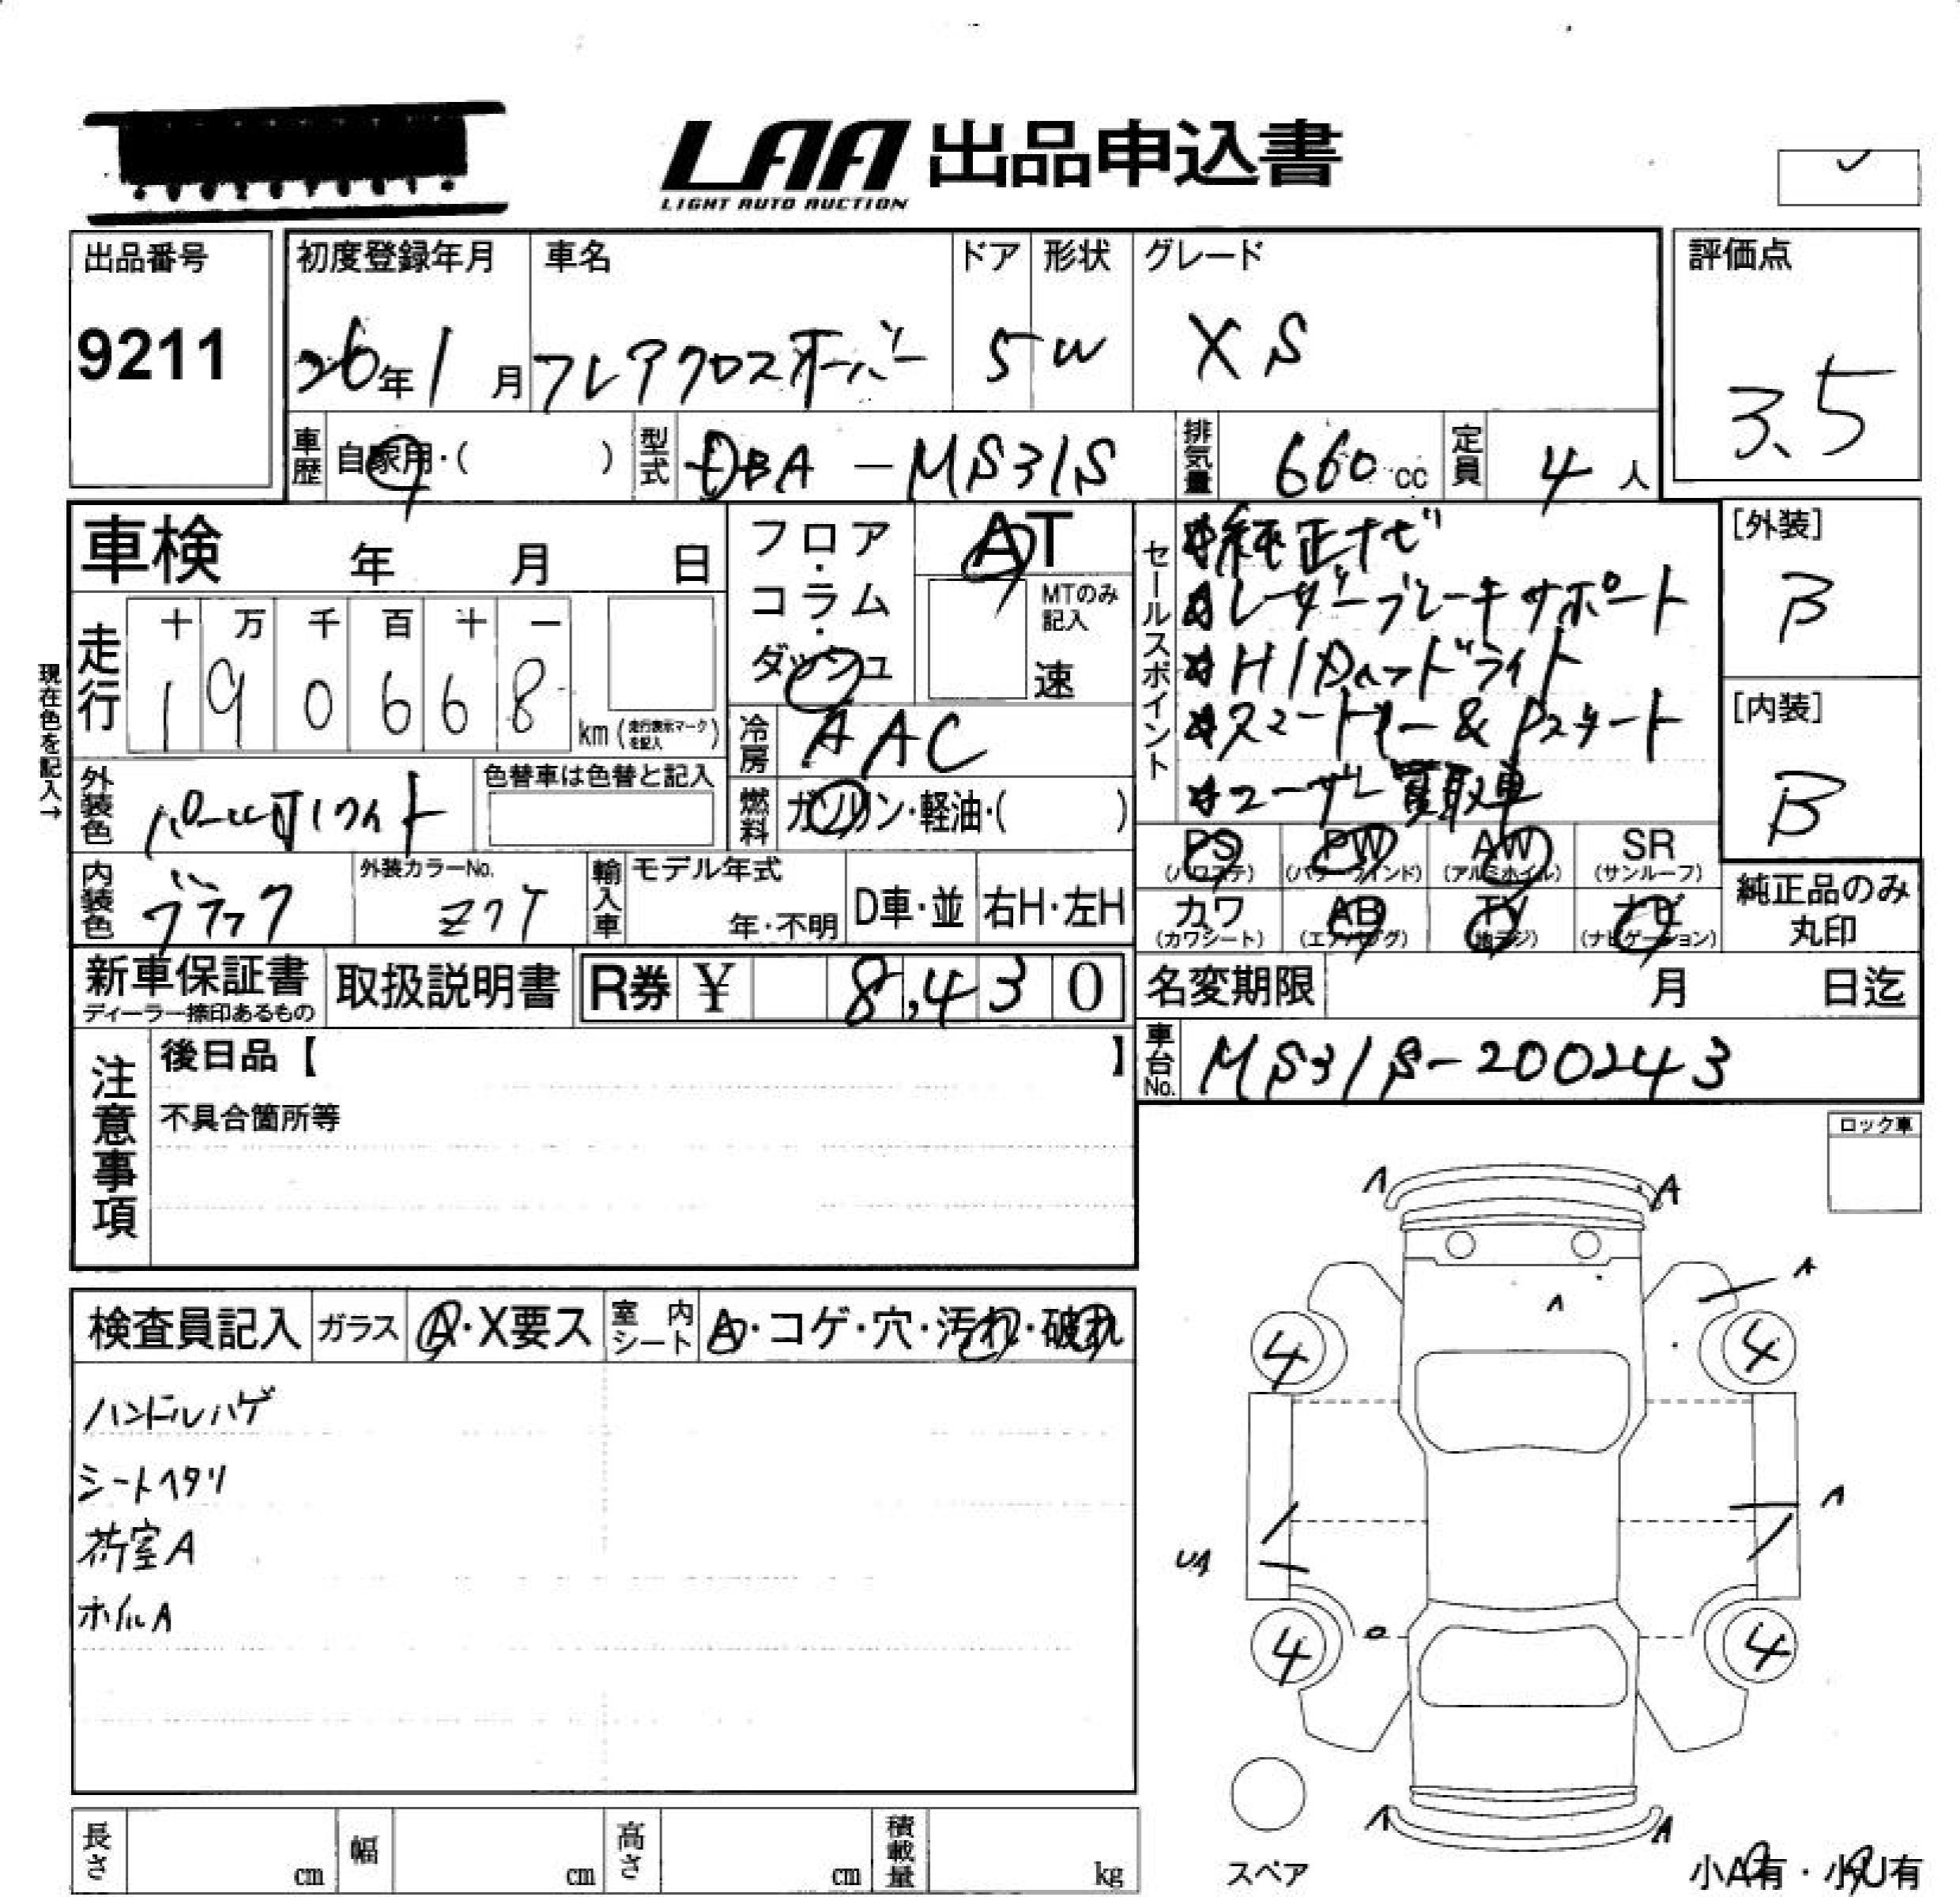 LAA 出品申込書
LIGHT AUTO AUCTION
出品番号
9211
初度登録年月
26年1月
車名
フレアクロスオーバー
ドア
5
形状
W
グレード
XS
評価点
3.5
車歴
自家用・( )
型式
DBA-MS31S
排気量
660cc
定員
4人
車検 年 月 日
フロア・コラム・ダッシュ
AT
MTのみ記入
速
セールスポイント
☆純正ナビ
☆レーダーブレーキサポート
☆HIDヘッドライト
☆スマートキー&Pスタート
☆ユーザー買取車
[外装]
B
[内装]
B
現在色を記入→
走行
十 万 千 百 十 一
1 9 0 6 6 8
km(走行表示マークを記入)
冷房
AAC
外装色
パールホワイト
色替車は色替と記入
燃料
ガソリン・軽油・( )
PS
(パワステ)
PW
(パワーウインド)
AW
(アルミホイル)
SR
(サンルーフ)
内装色
ブラック
外装カラーNo.
Z7T
輸入車
モデル年式
年・不明
D車・並
右H・左H
カワ
(カワシート)
AB
(エアバッグ)
TV
(地デジ)
ナビ
(ナビゲーション)
純正品のみ
丸印
新車保証書
ディーラー捺印あるもの
取扱説明書
R券 ¥ 8,430
名変期限 月 日迄
車台No.
MS31S-200243
注意事項
後日品【 】
不具合箇所等
ロック車
検査員記入
ガラス
A・X要ス
室内シート
A・コゲ・穴・汚れ・破れ
ハンドルハゲ
シートヘタリ
荷室A
ホイルA
A
A
A
A
4
4
A
UA
4
4
A
A
スペア
小A有・小U有
長さ cm
幅 cm
高さ cm
積載量 kg